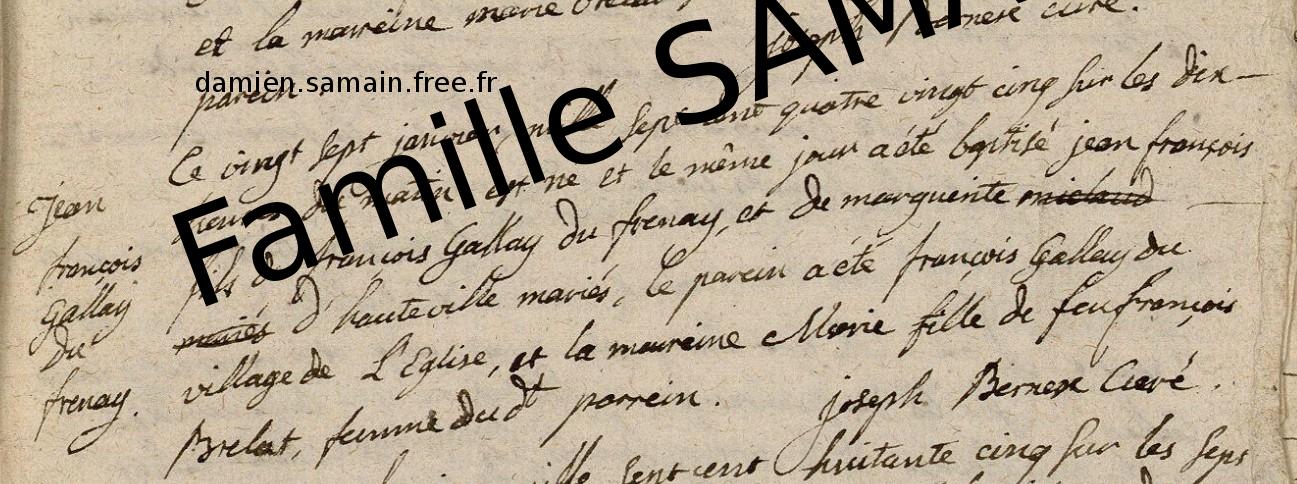 et la maireine marie
joseph Bernex curé.
damien.samain.free.fr
parein
Famille SAMA
Ce vingt sept janvier mille sept cent quatre vingt cinq sur les dix
heures du matin est né et le même jour a été baptisé jean françois
fils de françois Gallay du frenay, et de marguerite michaud
mariés d'hauteville mariés, le parein a été françois Gallay du
village de L'Eglise, et la maireine Marie fille de feu françois
Brelat, femme du dt parrein. joseph Bernex Curé.
Jean
françois
Gallay
du
frenay.
mille sept cent huitante cinq sur les sept